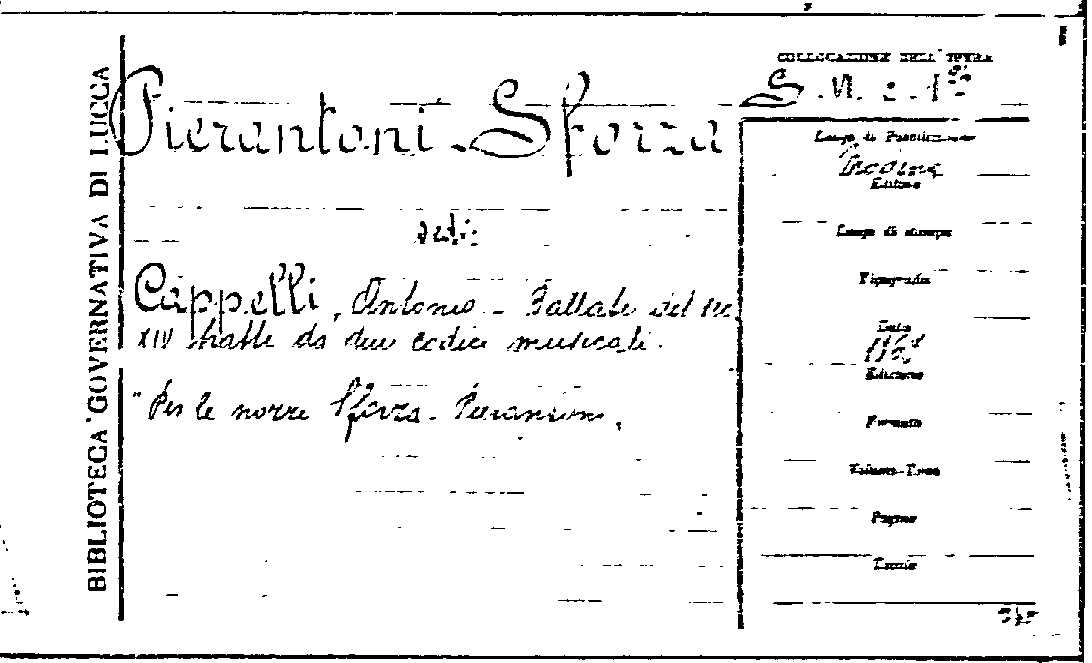 BIBLIOTECA GOVERNATIVA DI LUCCA
Pierantoni - Sforza
vedi:
Cappelli, Antonio - Ballate del sec.
XIV tratte da due codici musicali.
"Per le nozze Sforza - Pierantoni.
COLLOCAZIONE DELL' OPERA
Luogo di Pubblicazione
Modena
Editore
Luogo di stampa
Tipografia
Data
Edizione
Formato
Volume-Tomo
Pagine
Tavole